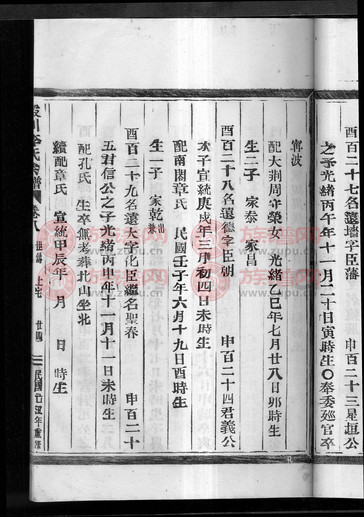 酉百二十七名還墻字臣藩　申百二十三星垣公
之子光緒丙午年十一月二十日寅時生〇奉委巡官卒
甯波
配大荆周守榮女　光緒乙巳年七月廿八日卯時生
生二子　家泰　家昌
酉百二十八名還德字臣朝　申百二十四君義公
次子宣統庚戌年三月初四日未時生
配南閣章氏　民國壬子年六月十九日酉時生
生一子　家乾
酉百二十九名還大字化臣繼名聖春　申百二十
五君信公之子光緒丙申年十一月十一日未時生
配孔氏　生卒無考葬北山坐北
續配章氏　宣統甲辰年　月　日　時生
李氏宗譜　卷八
民國